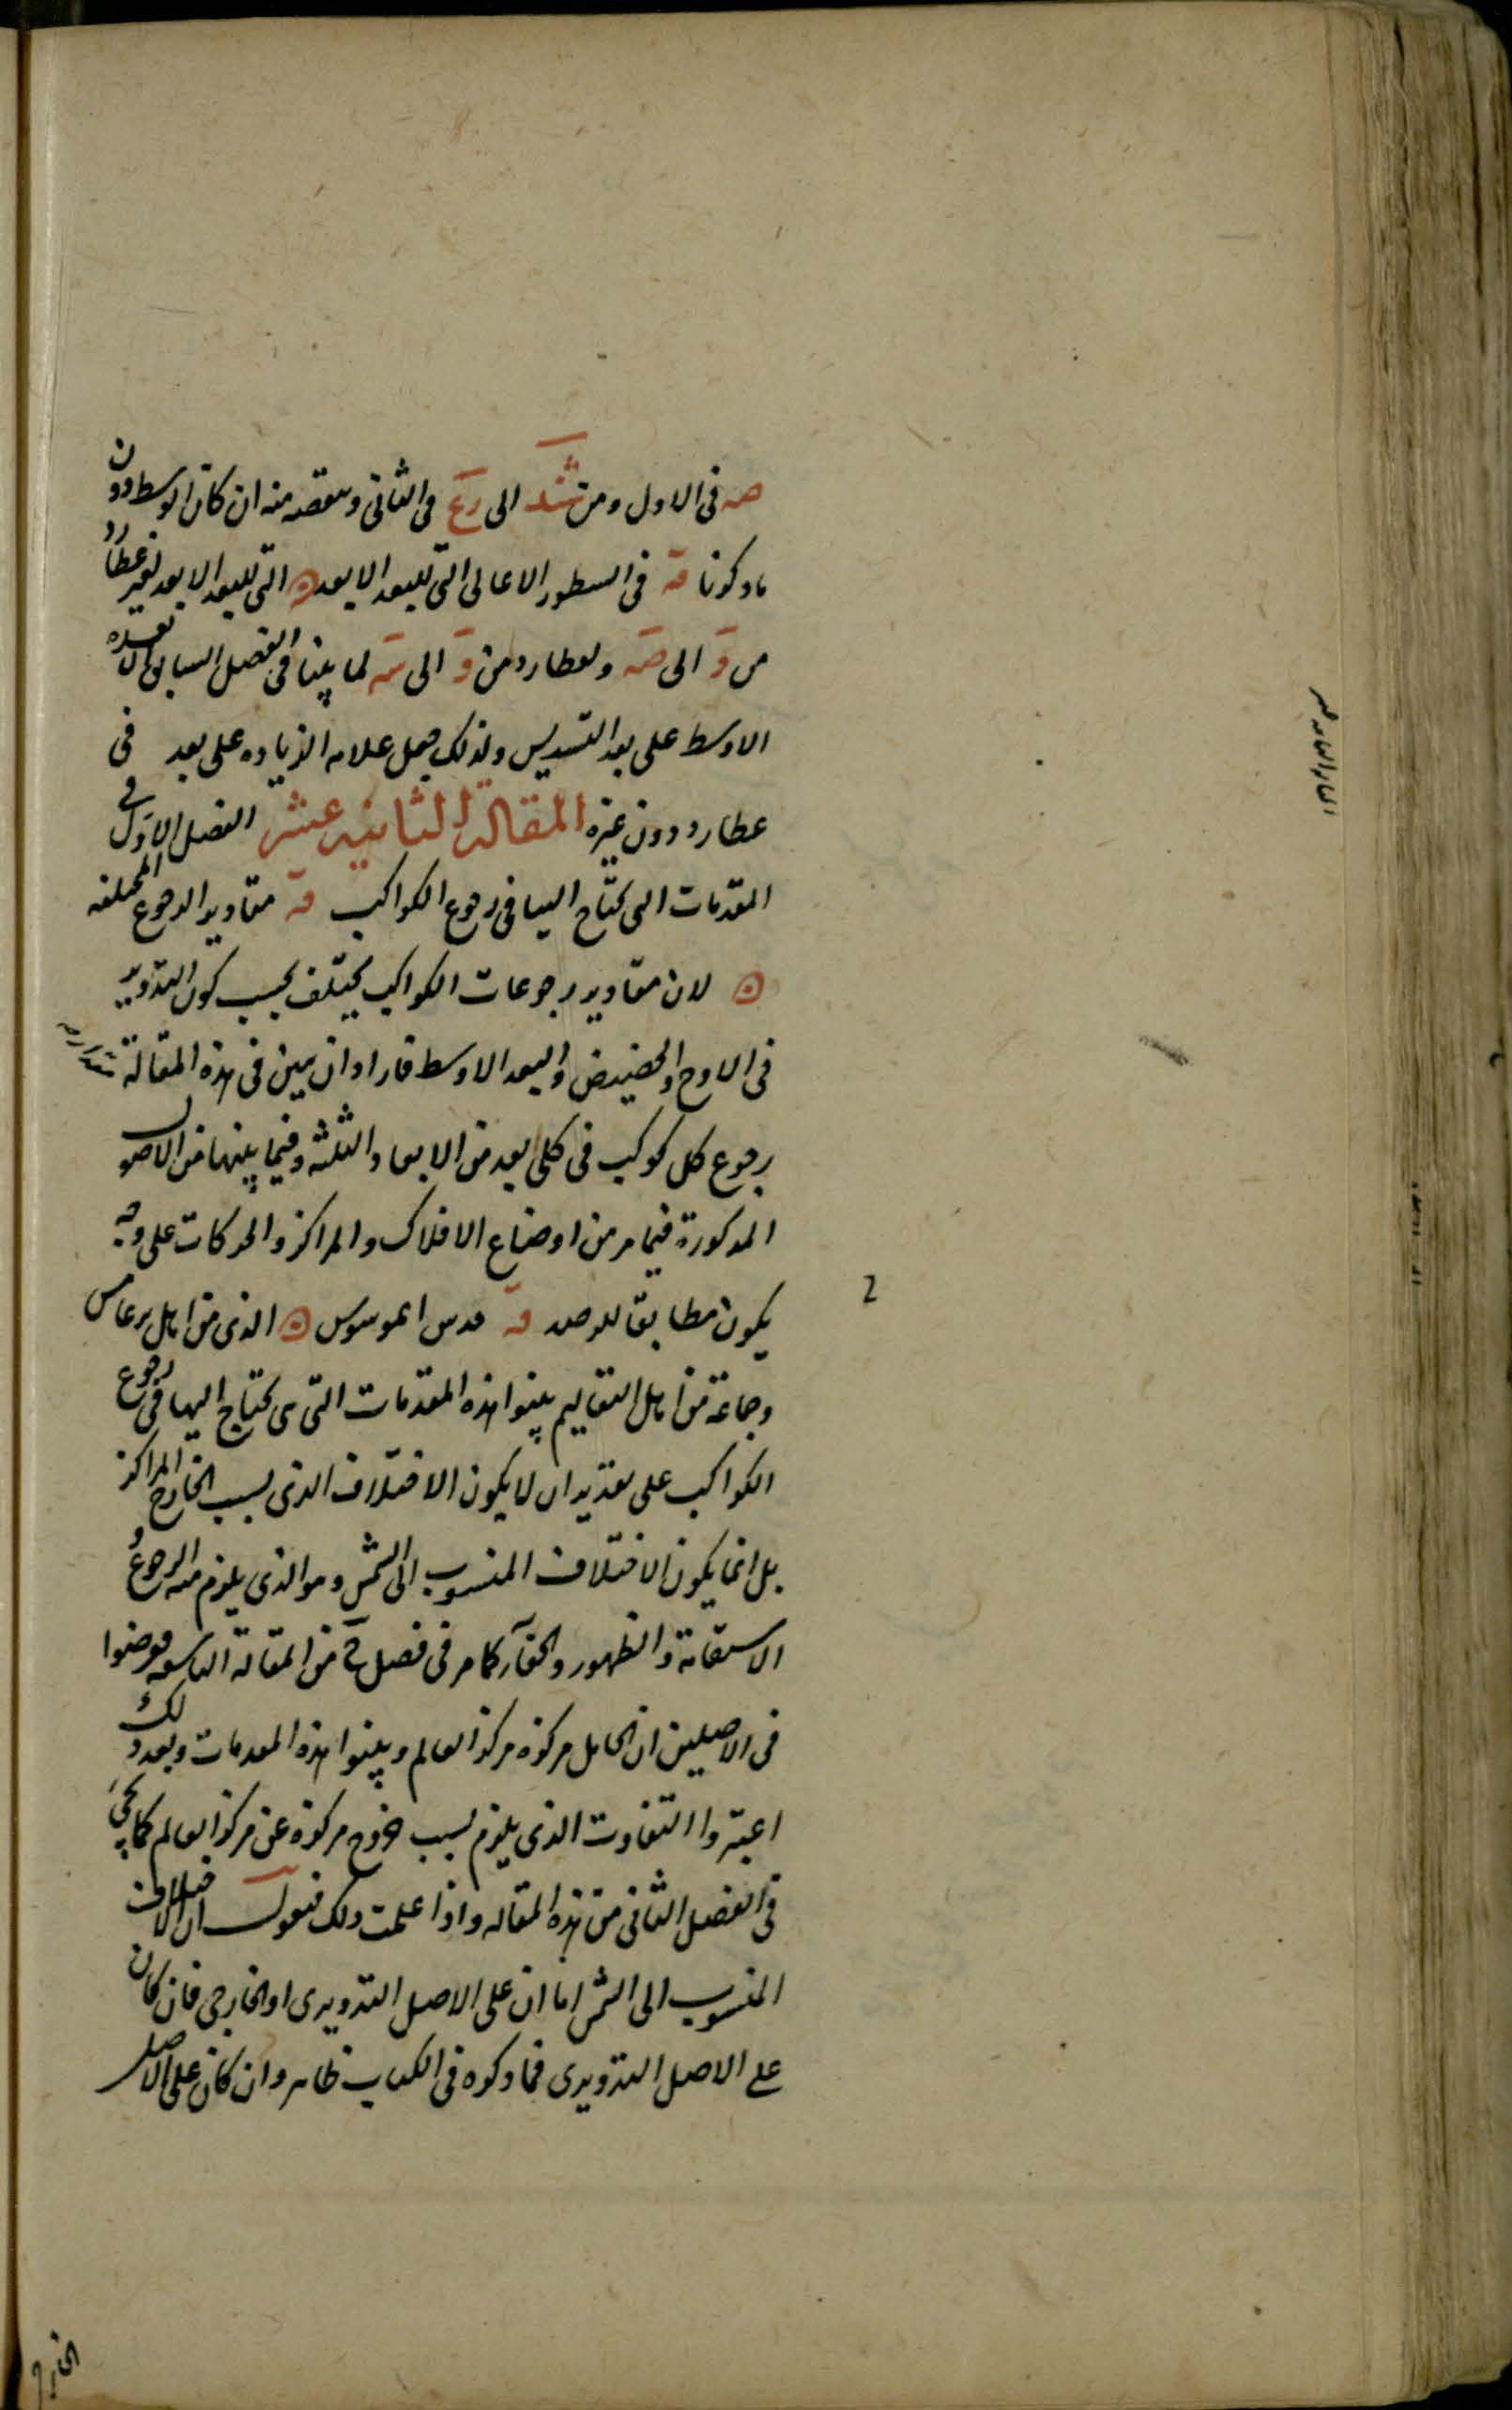 صه فى الاول ومن شند الى رع فى الثانى وينقصه منه ان كان الوسط دون
ما ذكرنا قه فى السطور الاعالى التى للبعد الابعد ۞ التى للبعد الابعد لغير عطارد
من و الى صه ولعطارد من و الى سه لما بينا فى الفصل السابق ان بعده
الاوسط على بعد التسديس ولذلك جعل علامه الزياده على بعد فى
عطارد دون غيره المقالة الثانيه عشر الفصل الاول فى
المقدمات التى يحتاج اليها فى رجوع الكواكب قه مقادير الرجوع المختلفه
۞ لان مقادير رجوعات الكواكب يختلف بحسب كون التدوير
فى الاوج والحضيض والبعد الاوسط فاراد ان يبين فى هذه المقالة مقدار
رجوع كل كوكب فى كل بعد من الابعاد الثلثه وفيما بينها من الاصول
المذكورة فيما مر من اوضاع الافلاك والمراكز والحركات على وجه
يكون مطابقا للرصد قه الموسوس ۞ الذى من اهل برغامس
وجماعة من اهل التعاليم بينوا هذه المقدمات التى يحتاج اليها فى رجوع
الكواكب على تقدير ان لا يكون الاختلاف الذى بسبب الخارج المراكز
بل انما يكون الاختلاف المنسوب الى الشمس وهو الذى يلزم منه الرجوع و
الاستقامة والظهور والخفآ كما مر فى فصل من المقالة التاسعه فرضوا
فى الاصلين ان الحامل مركزه مركز العالم وبينوا هذه المقدمات وبعد ذلك
اعتبروا التفاوت الذى يلزم بسبب خروج مركزه عن مركز العالم كما يجئ
فى الفصل الثانى من هذه المقاله واذا علمت ذلك فنقول ان الاختلاف
المنسوب الى الشمس اما ان على الاصل التدويرى او الخارجى فان كان
على الاصل التدويرى فما ذكره فى الكتاب ظاهر وان كان على الاصل